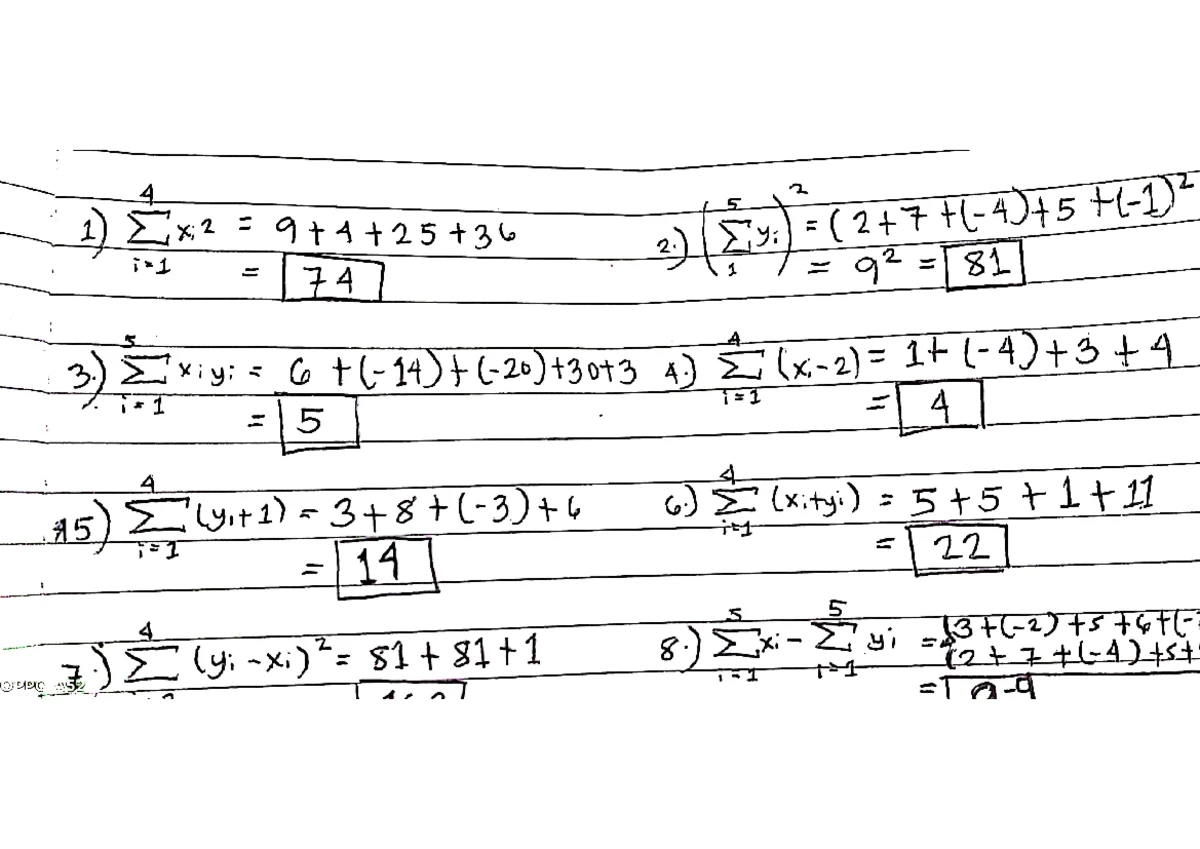 1) 4 ∑ i=1 xi2 = 9+4+25+36
= 74
2.) (5 ∑ 1 yi)² = (2+7+(-4)+5+(-1)²
= 9² = 81
3.) 5 ∑ i=1 xiyi = 6+(-14)+(-20)+30+3
= 5
4.) 4 ∑ i=1 (xi-2) = 1+(-4)+3+4
= 4
15) 4 ∑ i=1 (yi+1) = 3+8+(-3)+6
= 14
6.) 4 ∑ i=1 (xi+yi) = 5+5+1+11
= 22
7.) 4 ∑ (yi-xi)² = 81+81+1
8.) 5 ∑ i=1 xi - 5 ∑ i=1 yi = (3+(-2)+5+6+(-
(2+7+(-4)+5+
= 9-9